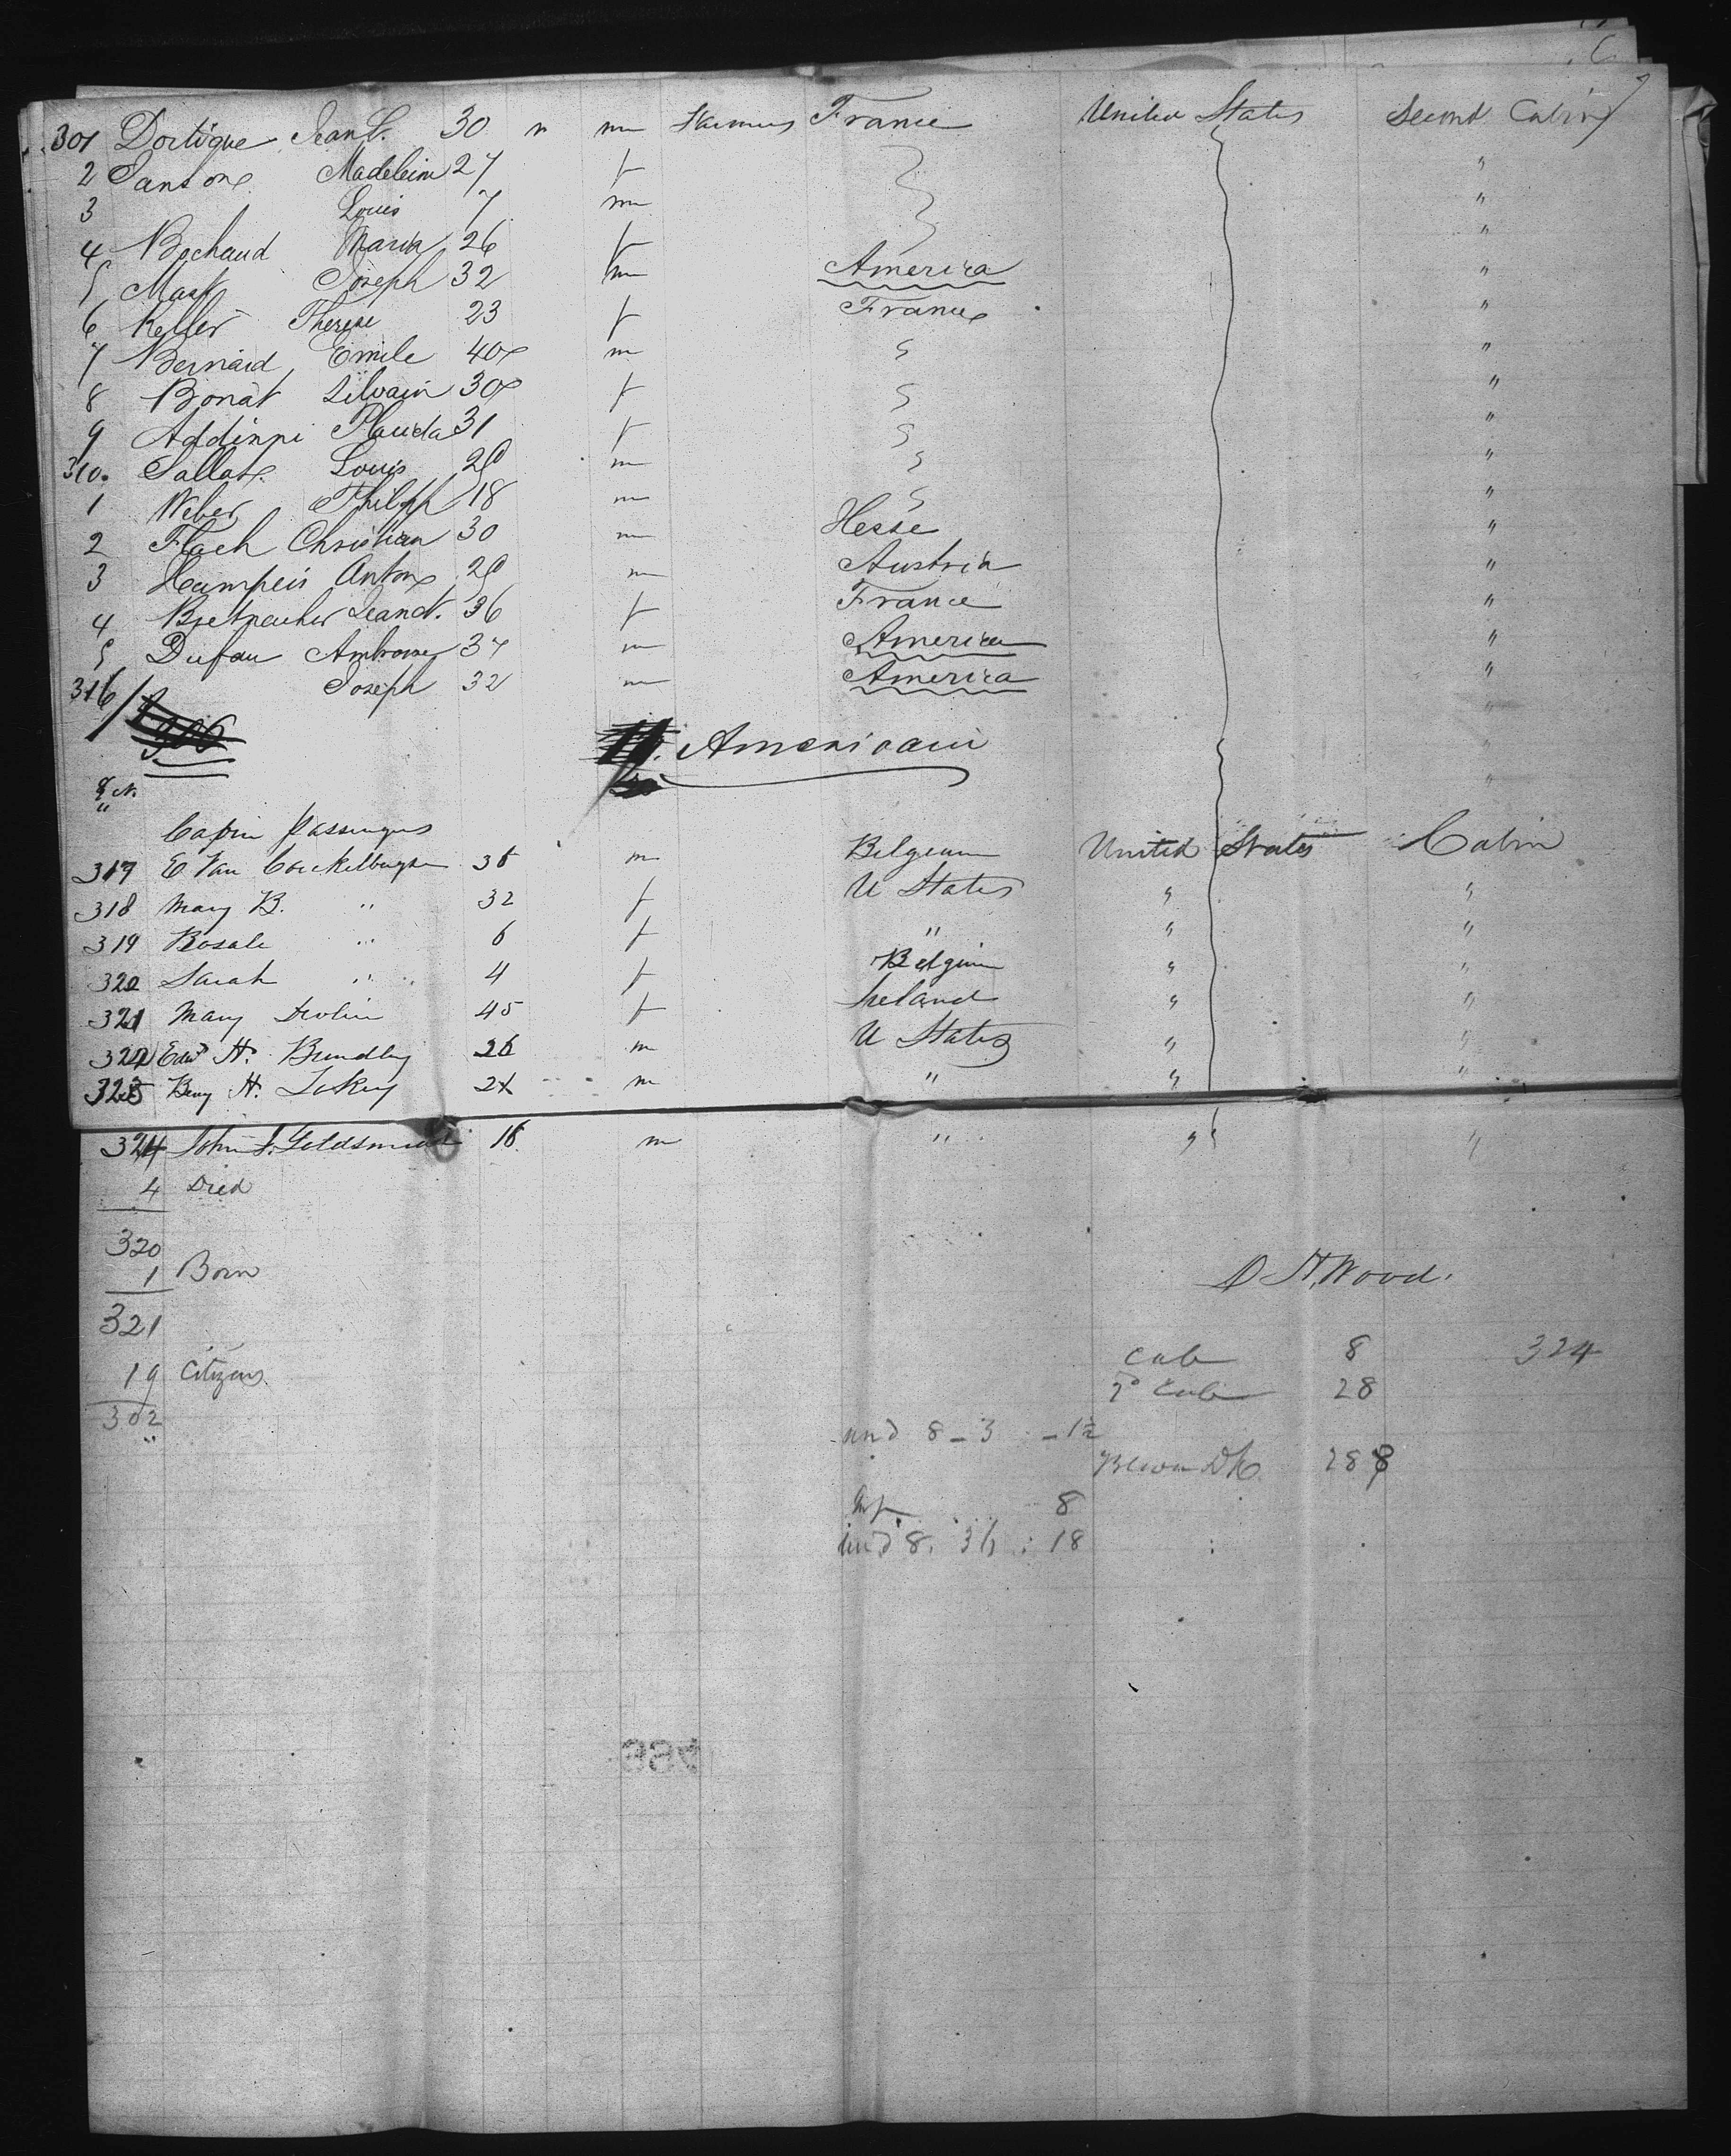 301 Dortique Jean L. 30 m France United States Second Cabin
2 Madeleine 27 f "
3 Louis 7 m "
4 Bechaud Maria 26 f "
5 Mast Joseph 32 m America "
6 Keller Therese 23 f France "
7 Bernard Emile 40 m "
8 Bonat Silvain 30 f "
9 31 f "
310. Louis 20 m "
1 Weber Philipp 18 m "
2 Flach Christian 30 m Hesse "
3 Anton 20 m Austria "
4 36 f France "
5 Dufau Ambroise 37 m America "
316 Joseph 32 m America "
306
Americain
Cabin Passengers
317 E Van 36 m Belgium United States Cabin
318 Mary B. " 32 f U States " "
319 Rosale " 6 f " " "
320 Sarah " 4 f Belgium " "
321 Mary Devlin 45 f Ireland " "
322 Edwd H. Brundley 26 m U States " "
323 Benj H. 21 m " " "
324 John S. Goldsmith 16 m " " "
4 Died
320
1 Born
D H. Wood.
321
Cab 8 324
19 Citizens
2d Cab 28
302
und 8 - 3 - 1
288
8
und 8. 36 : 18